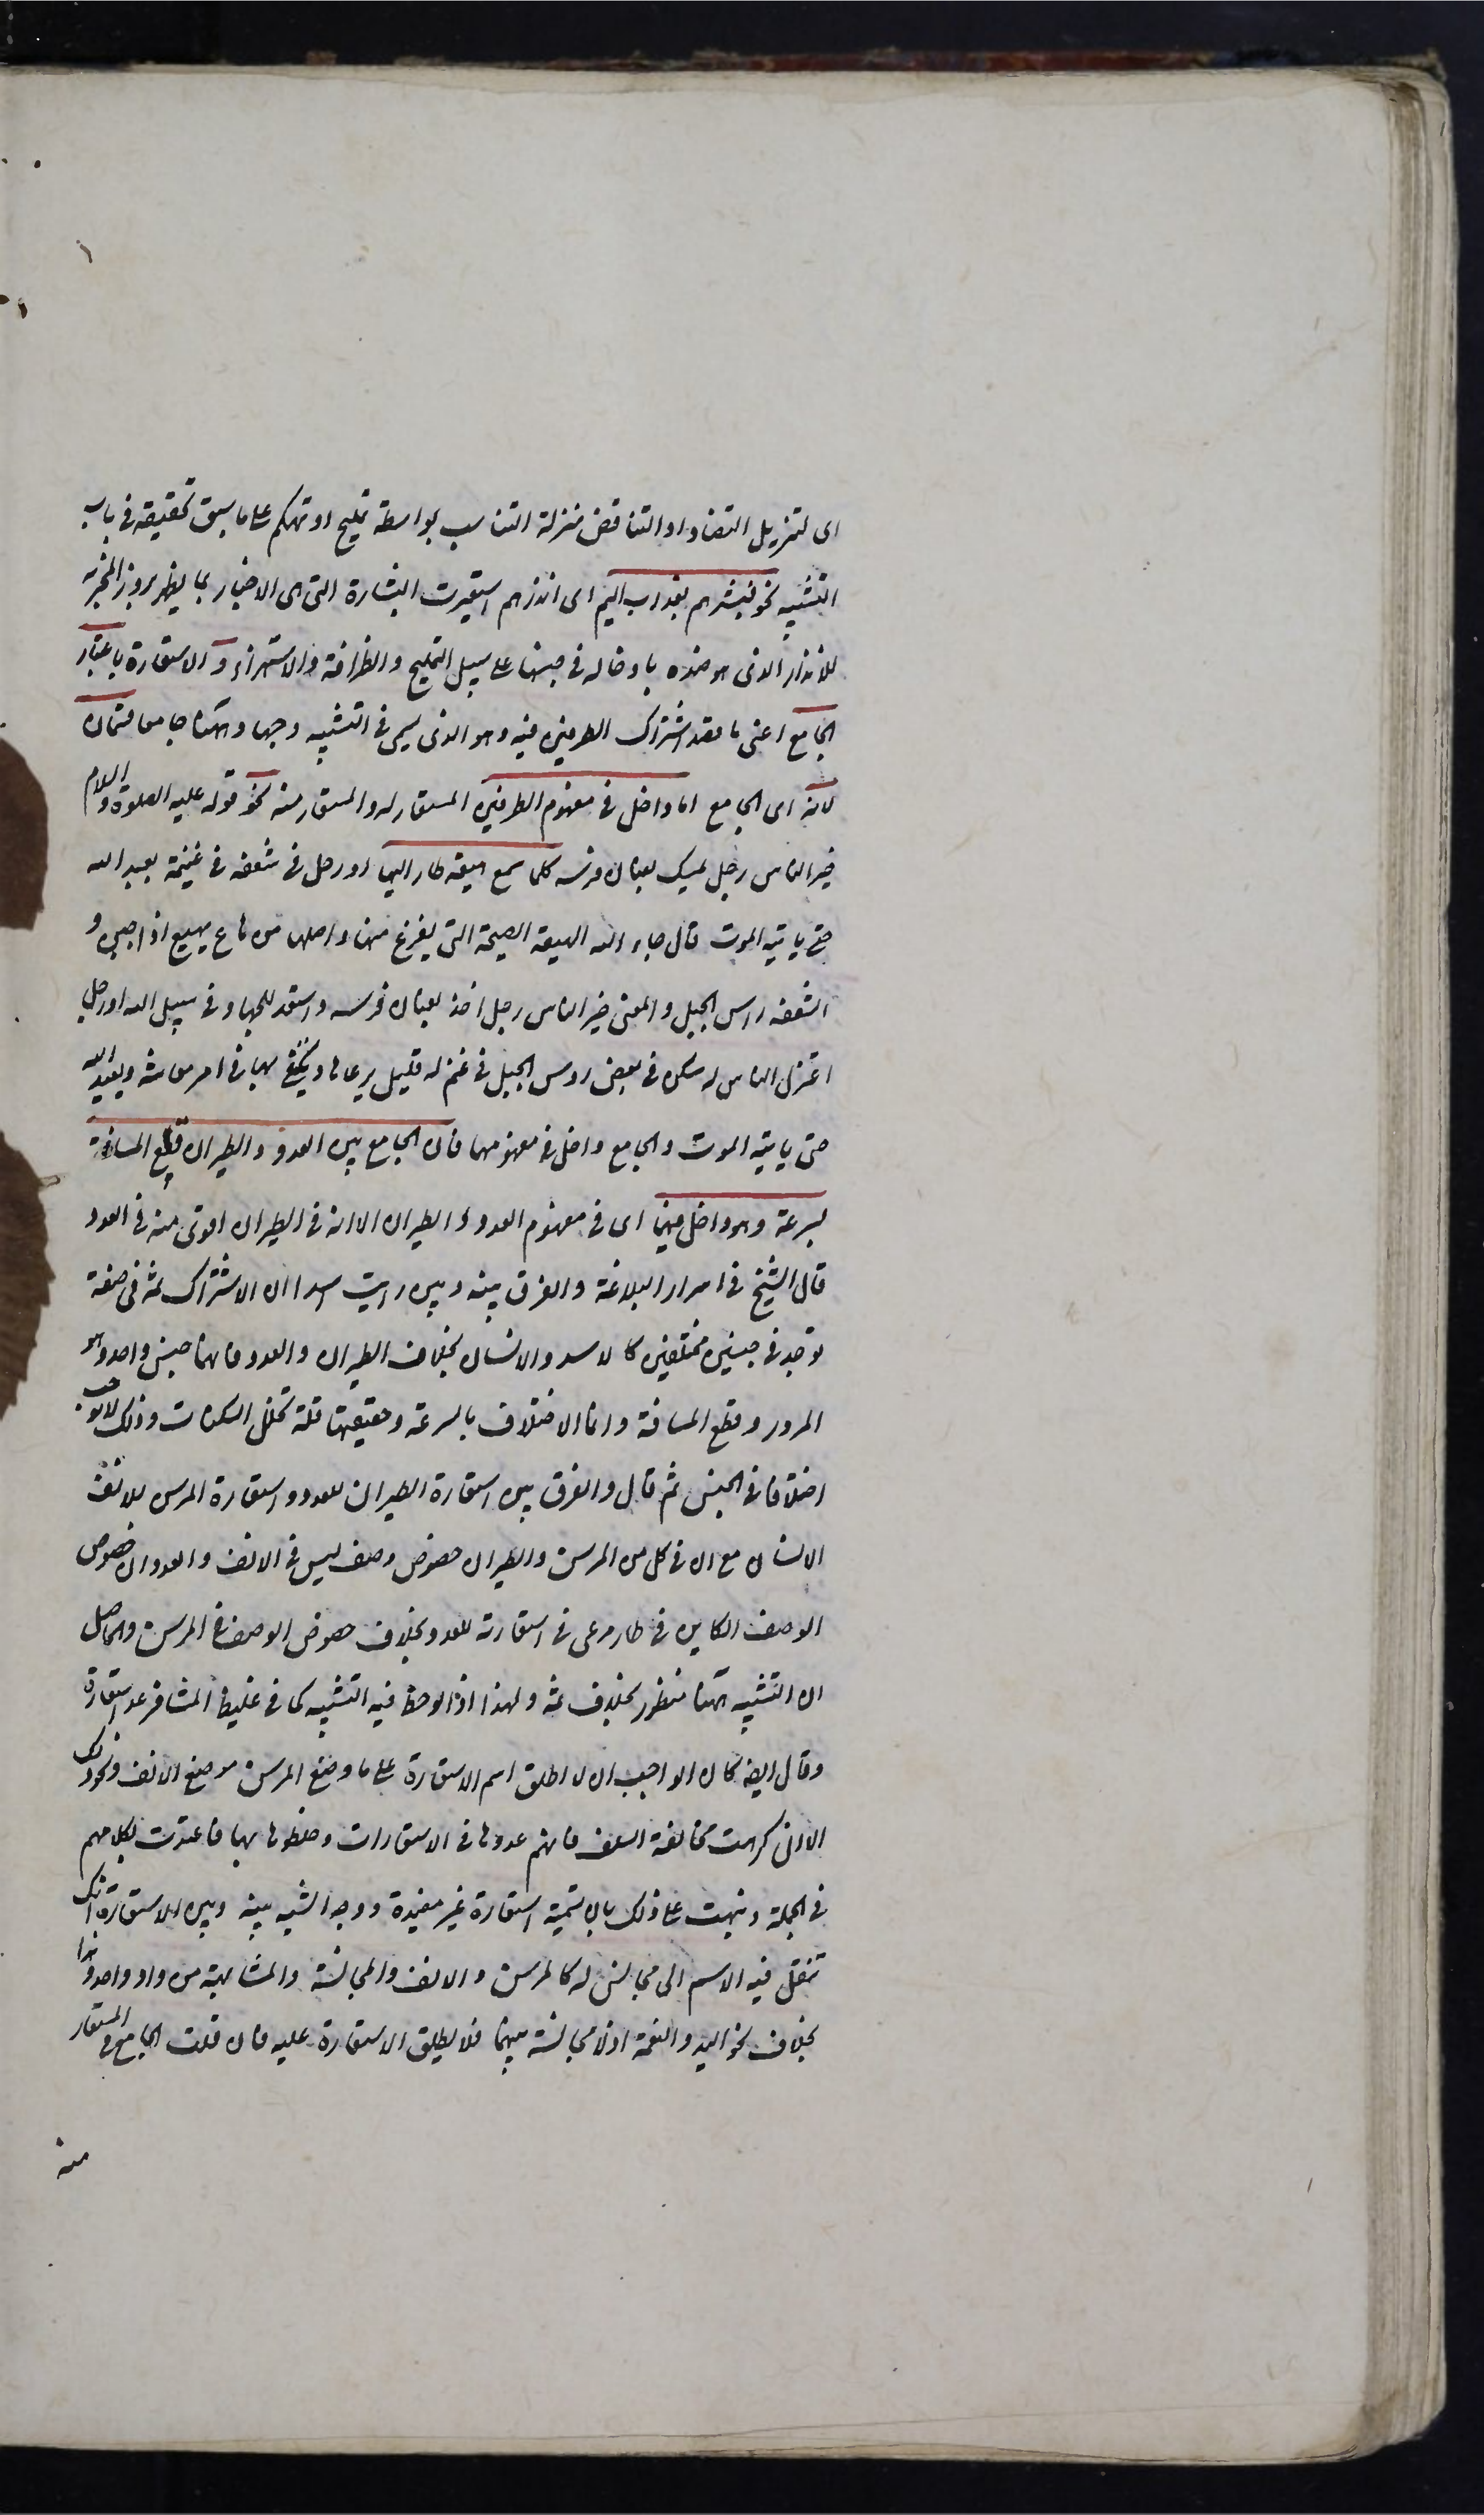 اى لتنزيل التضاد او التناقض منزلة التناسب بواسطة تمليح او تهكم على ما سبق تحقيقه فى باب
التشبيه نحو فبشرهم بعذاب اليم اى انذرهم استعيرت البشارة التى هى الاخبار بما يظهر سرور المخبر به
للانذار الذى هو ضده بادخاله فى جنسها على سبيل التمليح والظرافة والاستهزاء و الاستعارة باعتبار
الجامع اعنى ما قصد اشتراك الطرفين فيه وهو الذى يسمى فى التشبيه وجها وههنا جامعا قسمان
لانه اى الجامع اما داخل فى مفهوم الطرفين المستعار له والمستعار منه نحو قوله عليه الصلوة والسلام
خير الناس رجل يمسك بعنان فرسه كلما سمع هيعة طار اليها او رجل فى شعفة فى غنيمة يعبد الله
حتى ياتيه الموت قال جار الله الهيعة الصيحة التى يفزع منها واصلها من هاع يهيع اذا جبن و
الشعفة راس الجبل والمعنى خير الناس رجل اخذ بعنان فرسه واستعد للجهاد فى سبيل الله او رجل
اعتزل الناس وسكن فى بعض روس الجبل فى غنم له قليل يرعاها ويكتفى بها فى امر معاشه ويعبد الله
حتى ياتيه الموت والجامع داخل فى مفهومهما فان الجامع بين العدو والطيران قطع المسافة
بسرعة وهو داخل فيهما اى فى مفهوم العدو والطيران الا انه فى الطيران اقوى منه فى العدو
قال الشيخ فى اسرار البلاغة والفرق بينه وبين رايت اسدا ان الاشتراك ثمه فى صفة
توجد فى جنسين مختلفين كالاسد والانسان بخلاف الطيران والعدو فانهما جنس واحد وهو
المرور وقطع المسافة وانما الاختلاف بالسرعة وحقيقتها قلة تخلل السكنات وذلك لا يوجب
اختلافا فى الجنس ثم قال والفرق بين استعارة الطيران للعدو واستعارة المرسن للانف
الانسان مع ان فى كل من المرسن والطيران خصوص وصف ليس فى الانف والعدو ان خصوص
الوصف الكاين فى طار مرعى فى استعارته للعدو بخلاف خصوص الوصف فى المرسن والحاصل
ان التشبيه ههنا منظور بخلاف ثمه ولهذا اذا لوحظ فيه التشبيه كما فى غليظ المشافر عد استعارة
وقال ايضا كان الواجب ان لا اطلق اسم الاستعارة على ما وضع المرسن موضع الانف ونحو ذلك
الا انى كرهت مخالفة السلف فانهم عدوها فى الاستعارات وخلطوها بها فاعتددت بكلامهم
فى الجملة ونبهت على ذلك بان سميته استعارة غير مفيدة ووجه الشبه بينه وبين الاستعارة انك
تنقل فيه الاسم الى مجانس له كالمرسن والانف والمجانسة والمشابهة من واد واحد وهذا
بخلاف نحو اليد والنعمة اذ لا مجانسة بينهما فلا يطلق الاستعارة عليه فان قلت الجامع فى المستعار
منه